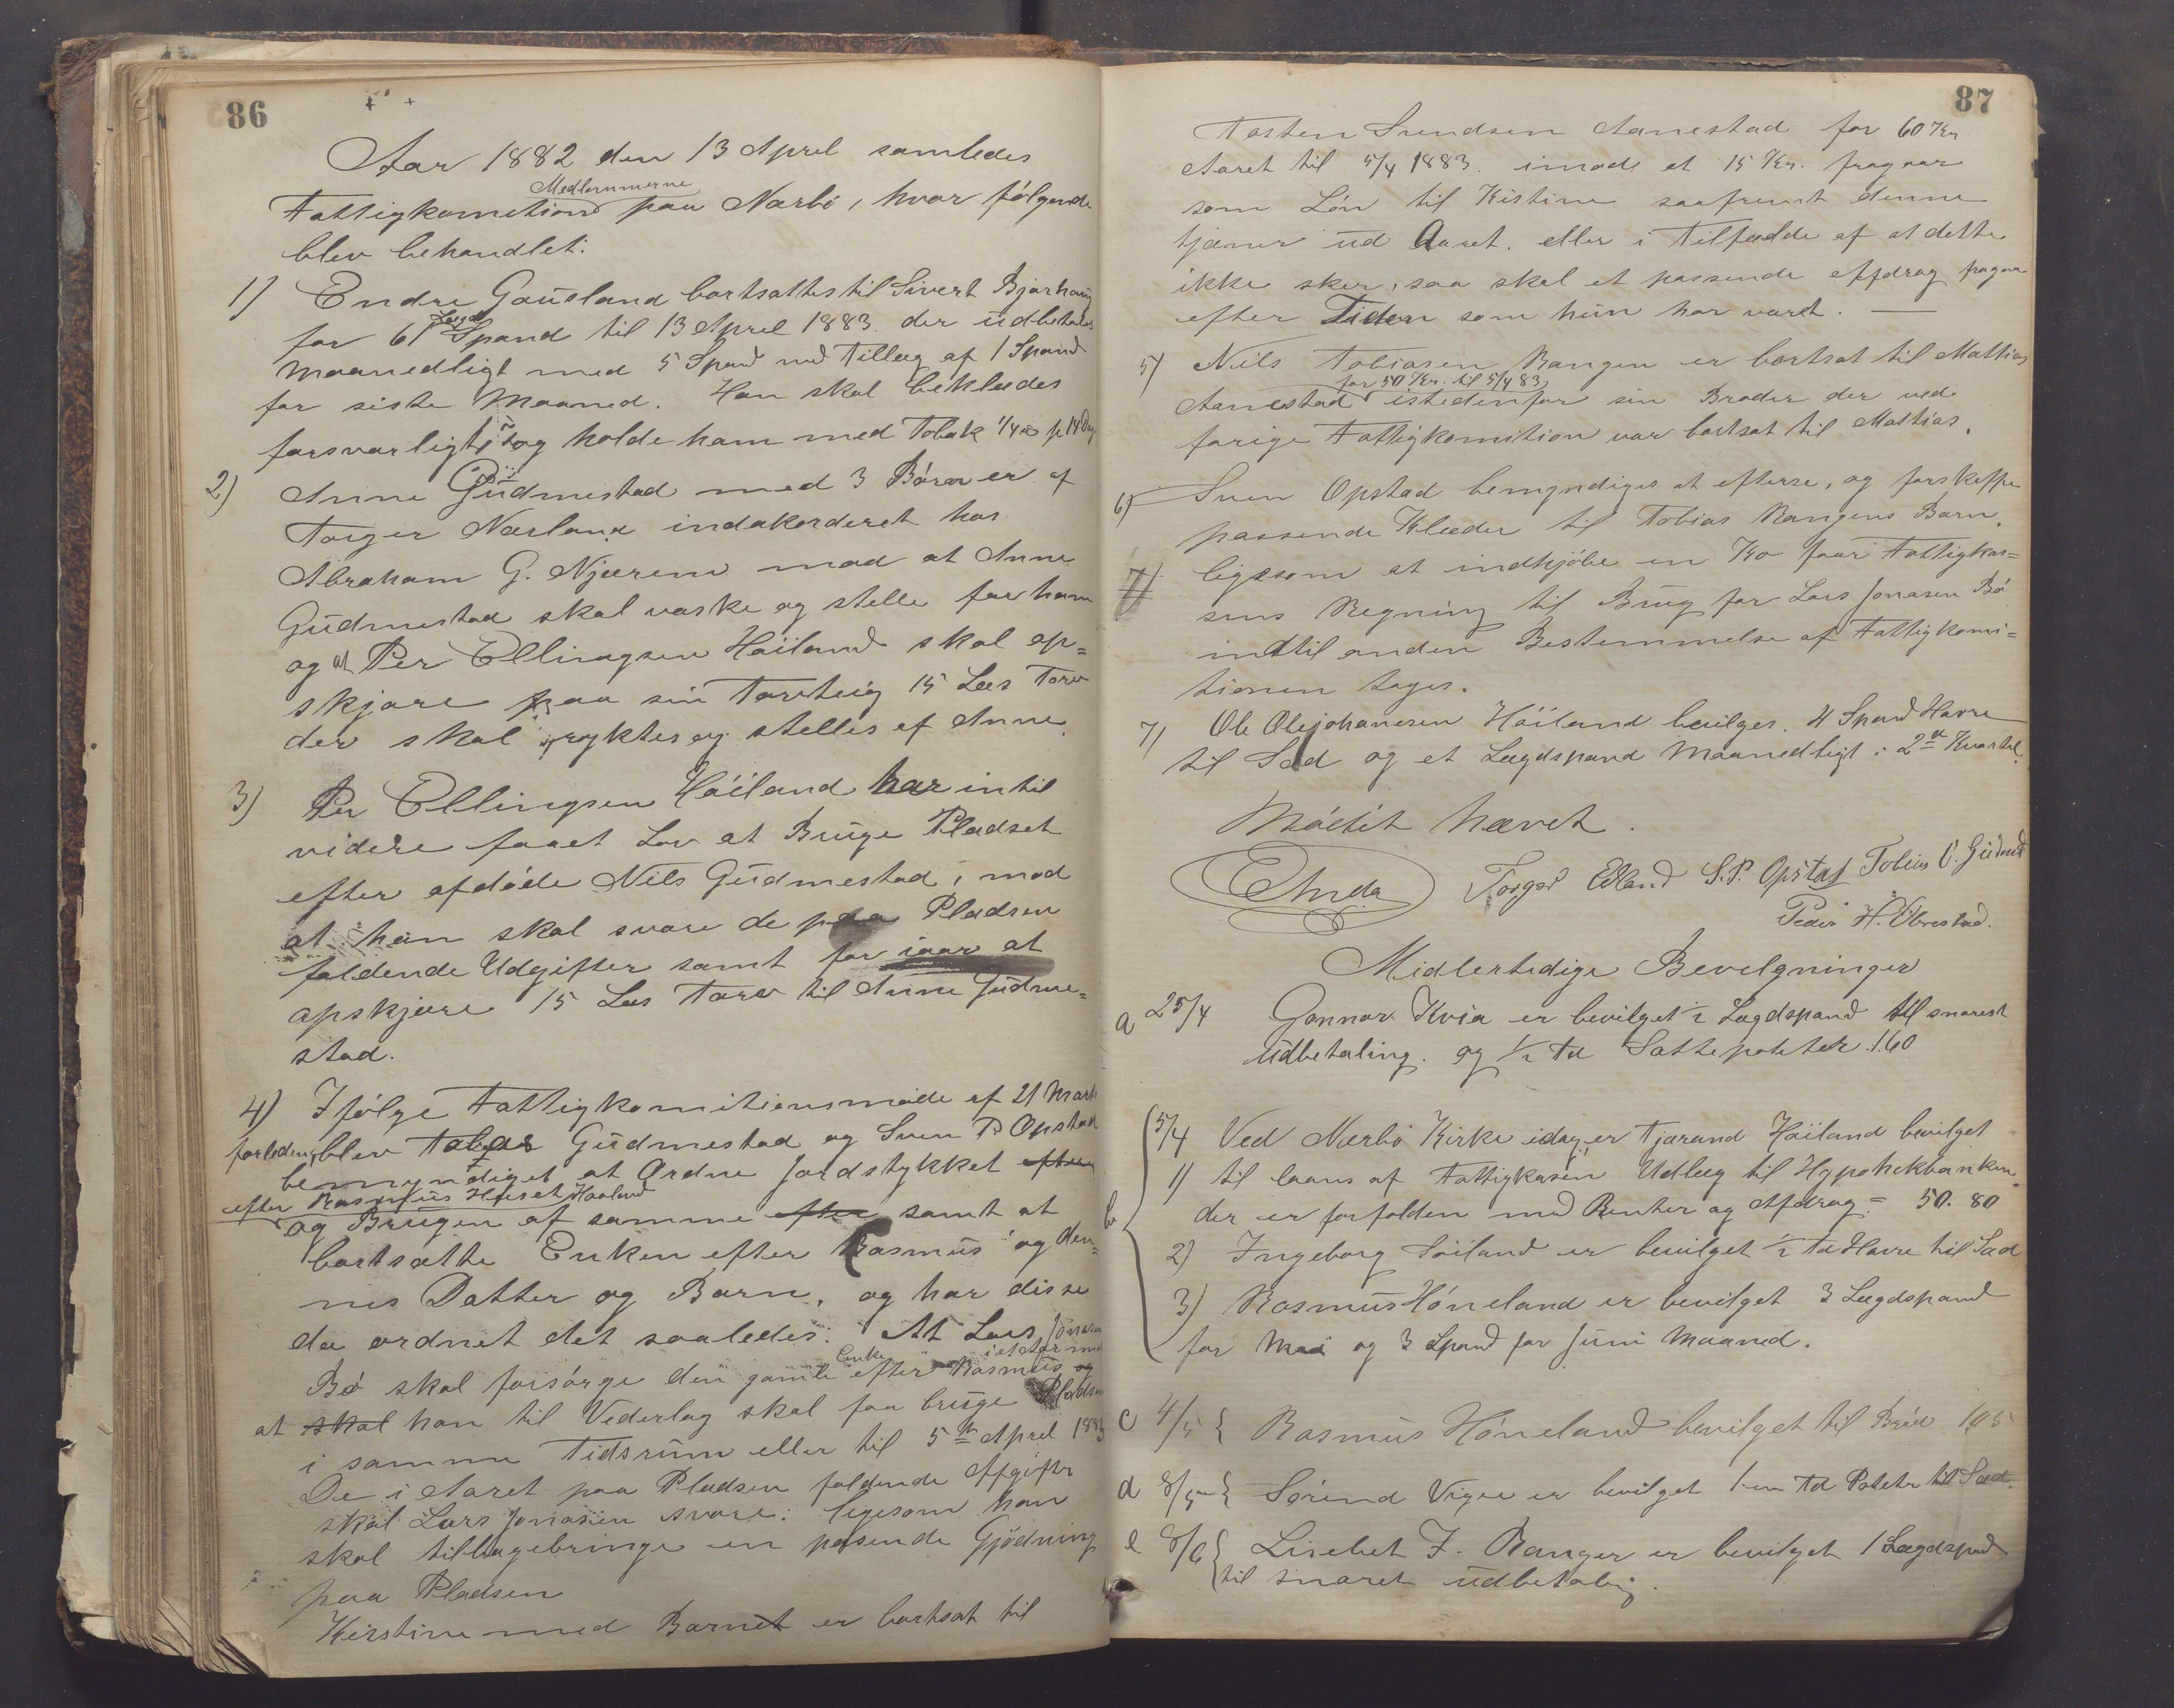 86
Aar 1882 den 13 April samledes
Medlemmerne
Fattigkomition paa Nærbö, hvor fölgende
blev behandlet:
1) Endre Gausland bortsattes til Sivert Bjorhaug
Lægd
for 61 Spand til 13 April 1883. der udbetales
Maanedligt med 5 Spand med Tillæg af 1 Spand
for siste Maaned. Han skal beklædes
forsvarligt og holde ham med Tobak 1/4 p 14 Dag
2) Anne Gudmestad med 3 Börn er af
Torger Nærland indakorderet hos
Abraham G. Njærem mod at Anne
Gudmestad skal vaske og stelle for ham
og at Per Ellingsen Höiland skal op=
skjære paa sin Torvteig 15 Læs Torv
der skal röktes og stelles af Anne.
3) Per Ellingsen Höiland har intil
videre faaet Lov at Bruge Pladset
efter afdöde Nils Gudmestad, mod
at han skal svare de paa Pladsen
faldende Udgifter samt for iaar at
opskjære 15 Læs Torv til Anne Gudme=
stad.
4) Ifölge Fattigkomitionsmöde af 21 Marts
forleden, blev Tobias Gudmestad og Sven P Opstad
bemyndiget at Ordne Jordstykket efter
efter Rasmus Huset Haaland
og Brugen af samme efter samt at
bortsætte Enken efter Rasmus og den=
nes Datter og Barn, og har disse
da ordnet det saaledes: At Lars Jonasen
Enke i et Aar mod
Bö skal forsörge den gamle efter Rasmus og
at skal han til Vederlag skal faa bruge Pladsen
i samme Tidsrum eller til 5te April 1883
De i Aaret paa Pladsen faldende Afgifter
skal Lars Jonasen svare: ligesom han
skal tilbagebringe en pasende Gjödning
paa Pladsen
Kirstine med Barnet er bortsat til
87
Tosten Svendsen Aanestad for 60 Kr
Aaret til 5/4 1883. imod at 15 Kr. fragaar
som Lön til Kistine saafremt denne
tjæner ud Aaret. eller i Tilfælde af at dette
ikke sker, saa skal et passende affdrag fragaa
efter Tiden som hun har været. —
5) Nils Tobiasen Rangen er bortsat til Mathias
for 50 Kr. til 5/4 83
Aanestad istedenfor sin Broder der ved
forige Fattigkomition var bortsat til Mathias.
6) Sven Opstad bemyndiges at efterse, og forskaffe
passende Klæder til Tobias Rangens Barn.
7) ligesom at indkjöbe en Ko faar Fattigkas=
sens Regning til Brug for Lars Jonasen Bö
indtil anden Bestemmelse af Fattigkomi=
tionen tages.
7) Ole Olejohanesen Höiland beviges. 4 Spand Havre
til Sæd og et Lægdspand Maanedligt i 2det Kvartal.
Mödet hævet.
E Anda Torger Edland S.P. Opstad Tobias O. Gudmd
Peder H. Obrestad.
Midlertedige Bevilgninger
a 25/4 Gonnar Kvia er bevilget 1/2 Lægdspand til snarest
udbetaling. og 1/2 Td Sættepoteter 1.60
b
5/4 Ved Nærbö Kirke idag er Tjærand Höiland bevilget
1) til laans af Fattigkasen Udlæg til Hypothekbanken.
der er forfalden med Renter og Afdrag = 50. 80
2) Ingeborg Söiland er bevilget 1/2 Td Havre til Sæd
3) Rasmus Höneland er bevilget 3 Lægdspand
for Mai og 3 Spand for Juni Maaned.
c 4/5 { Rasmus Höneland bevilget til Bröd 1,05
d 8/5 { Sörend Vigre er bevilget 1 en Td Poteter til Sæd.
e 8/6 { Lisebet T. Rangen er bevilget 1 Lægdspand
til snaret udbetaling.